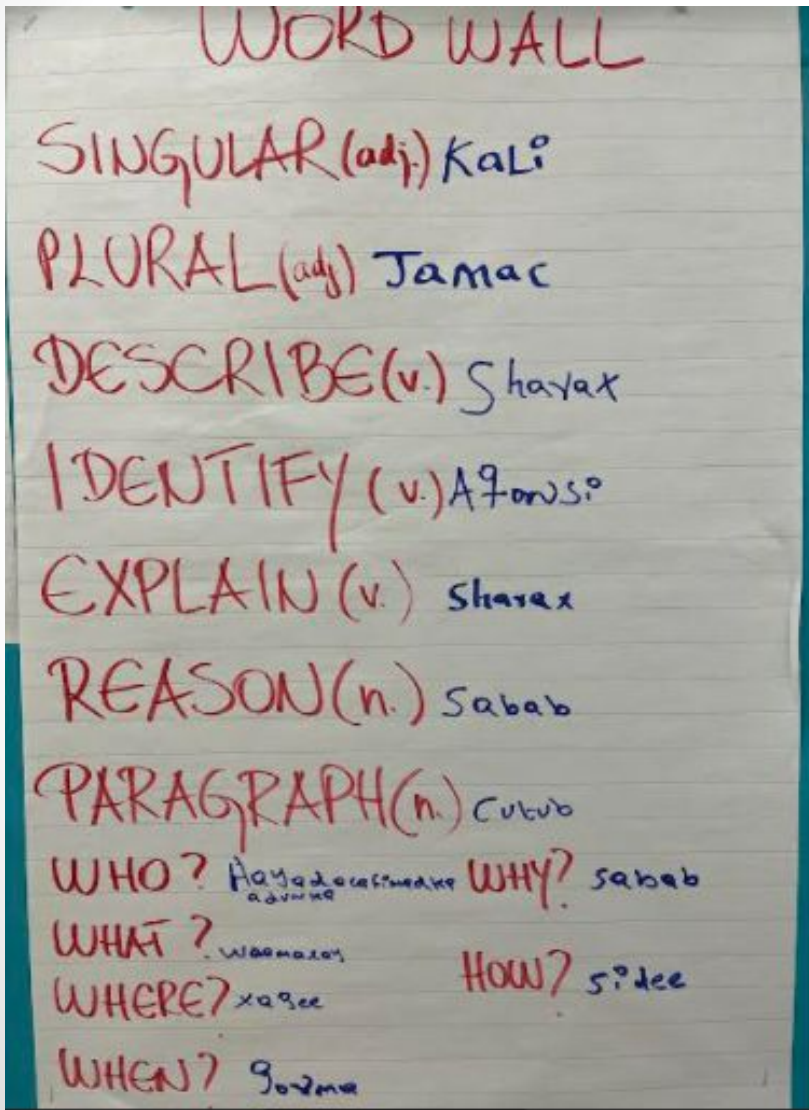 WORD WALL
SINGULAR (adj.) Kali
PLURAL (adj) Jamac
DESCRIBE (v.) Sharax
IDENTIFY (v.) Aqonsi
EXPLAIN (v.) Sharax
REASON (n.) Sabab
PARAGRAPH (n.) Cutub
WHO? WHY? sabab
WHAT? waamaxay
HOW? sidee
WHERE? xagee
WHEN? goorma